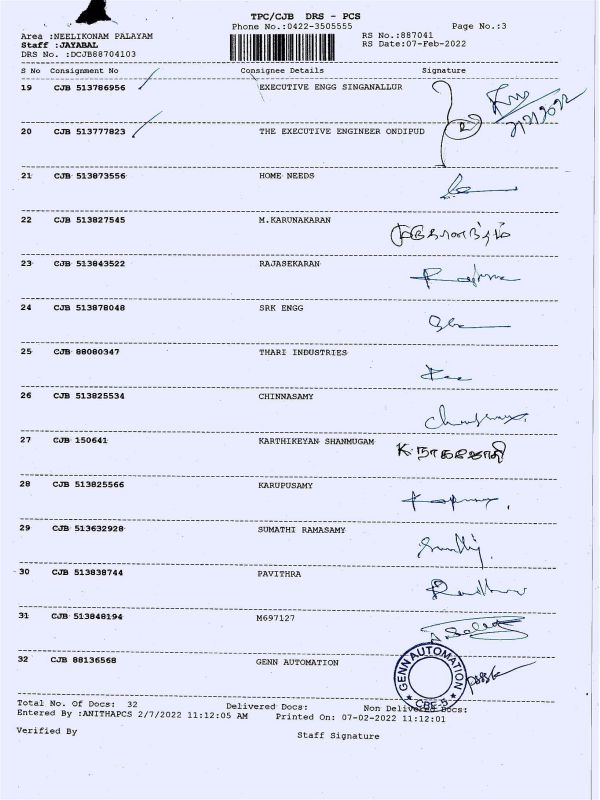 TPC/CJB DRS - PCS
Phone No.:0422-3505555 Page No.:3
Area :NEELIKONAM PALAYAM RS No.:887041
Staff :JAYABAL RS Date:07-Feb-2022
DRS No. :DCJB88704103
S No Consignment No Consignee Details Signature
19 CJB 513786956 EXECUTIVE ENGG SINGANALLUR
20 CJB 513777823 THE EXECUTIVE ENGINEER ONDIPUD
21 CJB 513873556 HOME NEEDS
22 CJB 513827545 M.KARUNAKARAN
23 CJB 513843522 RAJASEKARAN
24 CJB 513878048 SRK ENGG
25 CJB 88080347 THARI INDUSTRIES
26 CJB 513825534 CHINNASAMY
27 CJB 150641 KARTHIKEYAN SHANMUGAM
28 CJB 513825566 KARUPUSAMY
29 CJB 513632928 SUMATHI RAMASAMY
30 CJB 513838744 PAVITHRA
31 CJB 513848194 M697127
32 CJB 88136568 GENN AUTOMATION
GENN AUTOMATION
CBE-5
Total No. Of Docs: 32 Delivered Docs: Non Delivered Docs:
Entered By :ANITHAPCS 2/7/2022 11:12:05 AM Printed On: 07-02-2022 11:12:01
Verified By Staff Signature